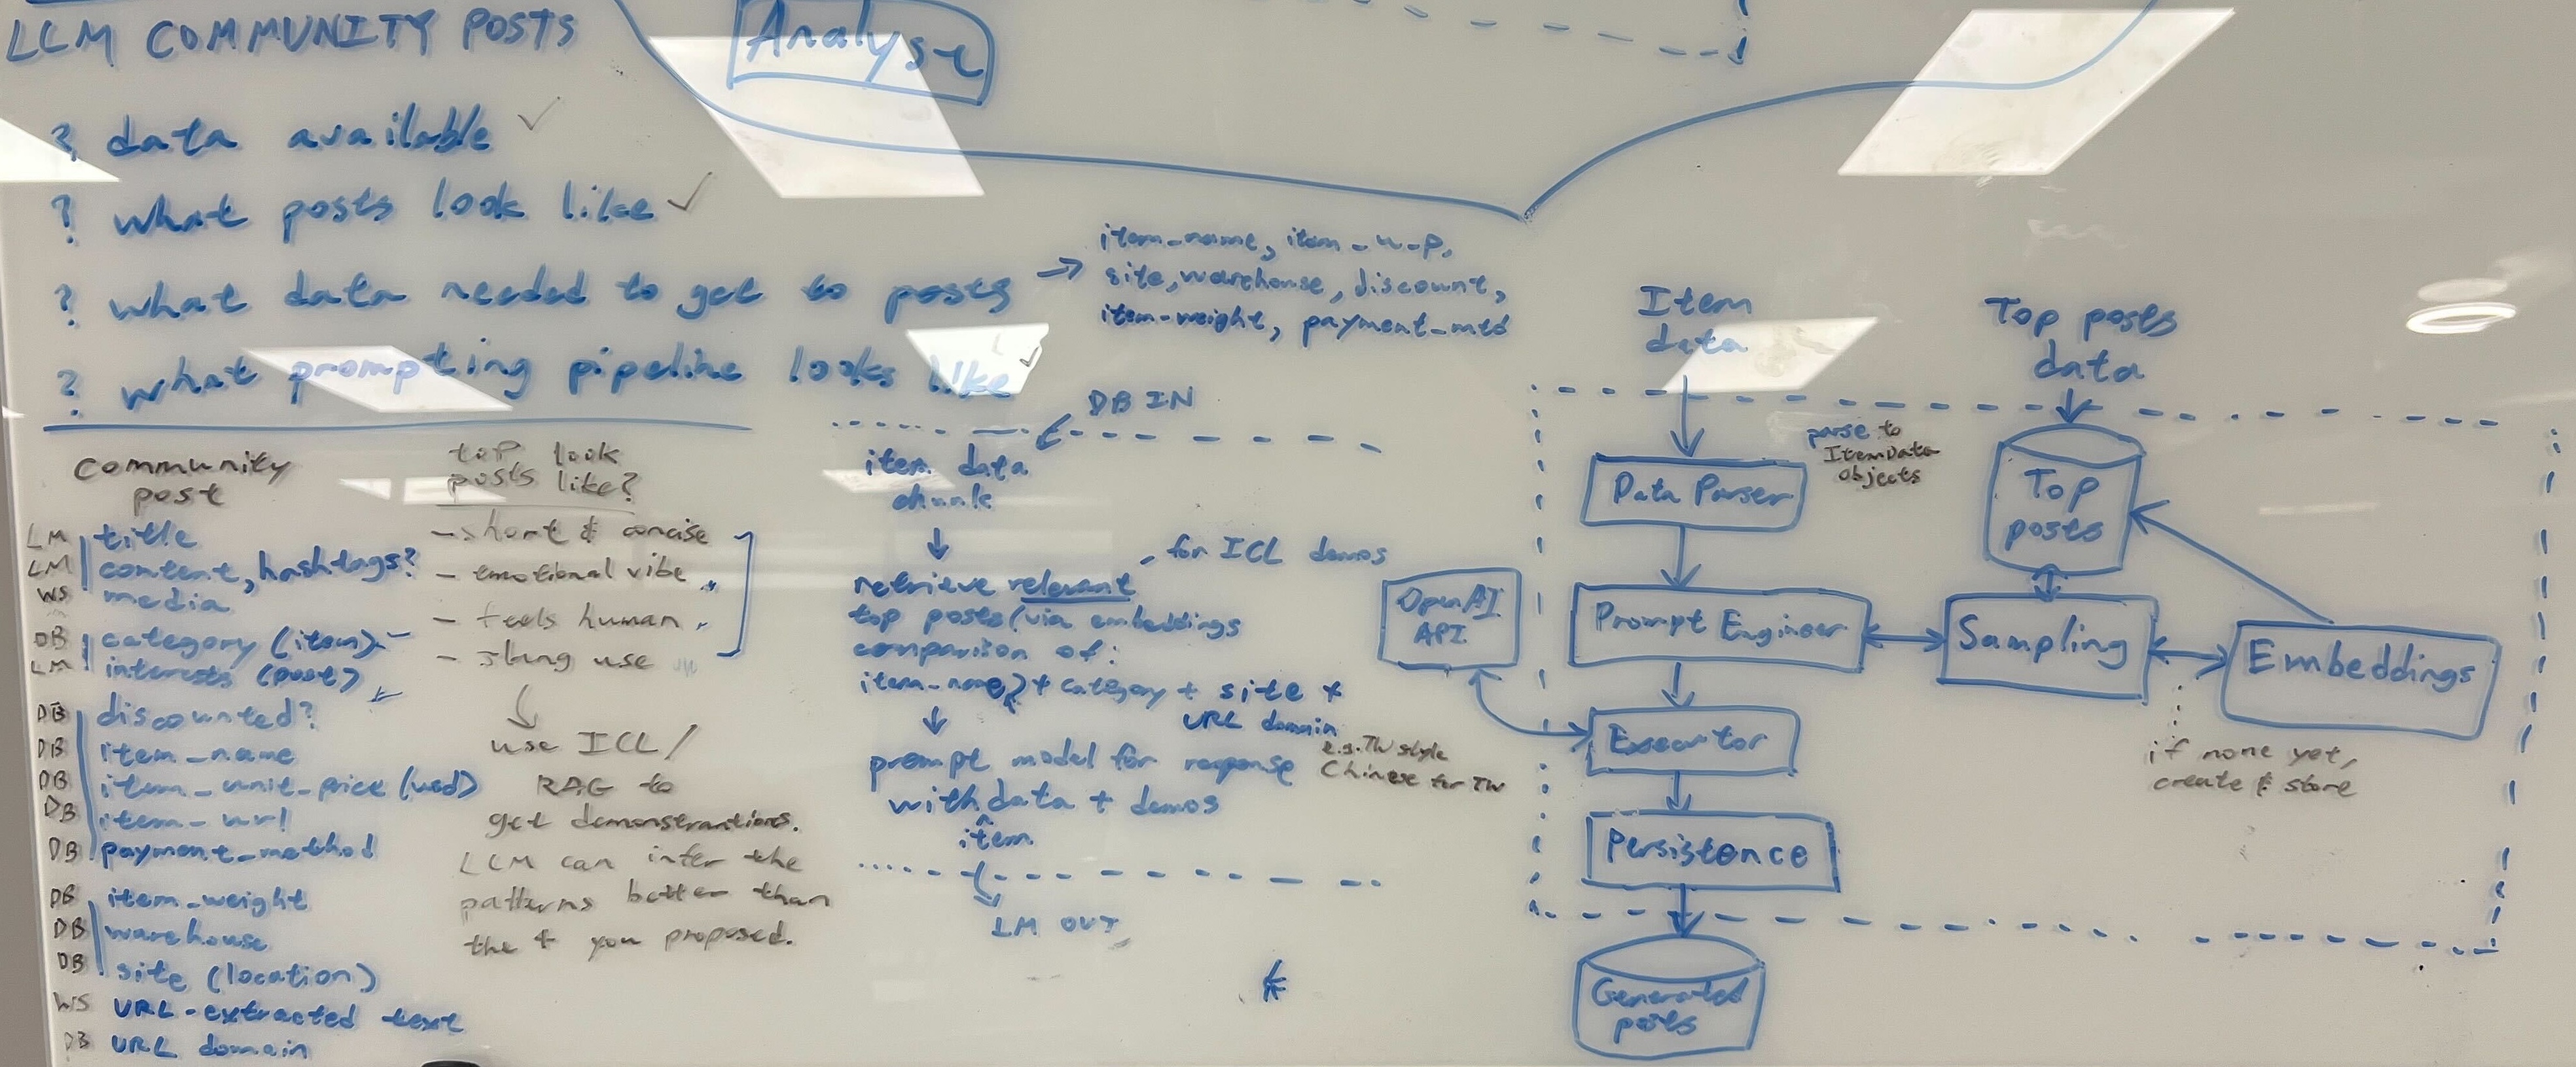 LLM COMMUNITY POSTS
Analyst
? data available ✓
? what posts look like ✓
? what data needed to get to posts →
item_name, item_u_p,
site, warehouse, discount,
item-weight, payment_mtd
? what prompting pipeline looks like ✓
community
post
LM title
LM content, hashtags?
WS media
DB category (item)
LM interests (post)
DB discounted?
DB item_name
DB item_unit_price (usd)
DB item_url
DB payment_method
DB item_weight
DB warehouse
DB site (location)
WS URL-extracted text
DB URL domain
top look
posts like?
- short & concise
- emotional vibe
- feels human
- slang use
use ICL/
RAG to
get demonstrantions.
LLM can infer the
patterns better than
the 4 you proposed.
DB IN
item data
chunk
retrieve relevant
for ICL demos
top posts (via embeddings
comparison of:
item_name) + category + site +
URL domain
prompt model for response
e.g. TW style
Chinese for TW
with data + demos
^
item
LM OUT
*
Item
data
Top posts
data
Data Parser
parse to
ItemData
Objects
Top
posts
OpenAI
API
Prompt Engineer
Sampling
Embeddings
if none yet,
create & store
Executor
Persistence
Generated
posts